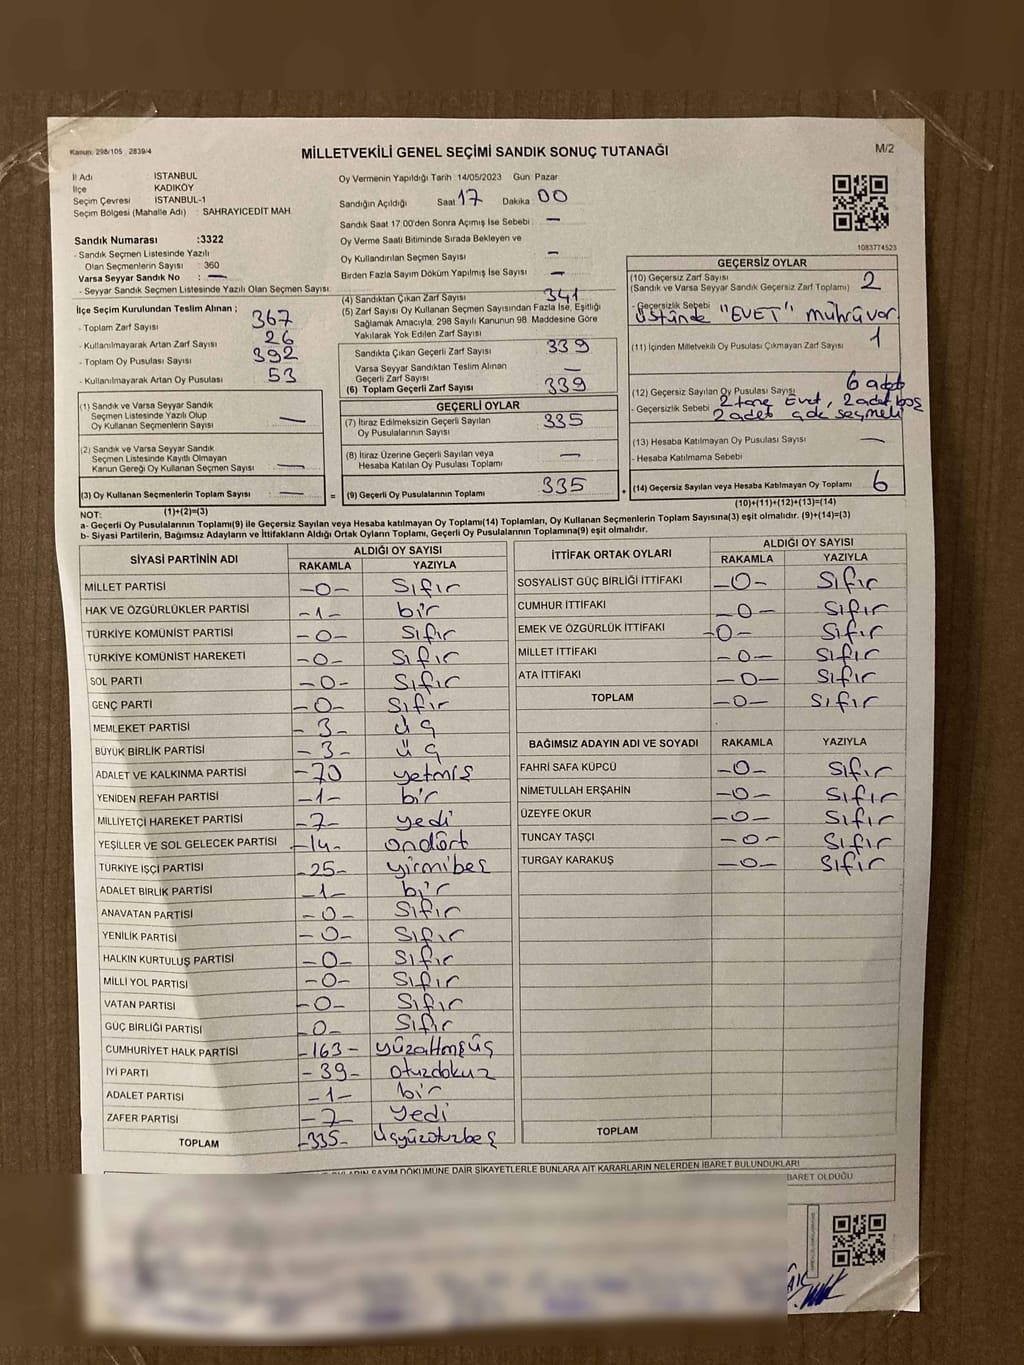 Kanun: 298/105 , 2839/4
MİLLETVEKİLİ GENEL SEÇİMİ SANDIK SONUÇ TUTANAĞI
M/2
İl Adı İSTANBUL
İlçe KADIKÖY
Seçim Çevresi İSTANBUL-1
Seçim Bölgesi (Mahalle Adı) : SAHRAYICEDİT MAH.
Oy Vermenin Yapıldığı Tarih :14/05/2023 Gün Pazar
Sandığın Açıldığı Saat 17 Dakika 00
Sandık Saat 17.00'den Sonra Açımış İse Sebebi : —
Oy Verme Saati Bitiminde Sırada Bekleyen ve
Oy Kullandırılan Seçmen Sayısı —
Birden Fazla Sayım Döküm Yapılmış İse Sayısı —
1083774523
Sandık Numarası :3322
- Sandık Seçmen Listesinde Yazılı
Olan Seçmenlerin Sayısı : 360
Varsa Seyyar Sandık No : —
- Seyyar Sandık Seçmen Listesinde Yazılı Olan Seçmen Sayısı:
İlçe Seçim Kurulundan Teslim Alınan ;
- Toplam Zarf Sayısı 367
- Kullanılmayarak Artan Zarf Sayısı 26
- Toplam Oy Pusulası Sayısı 392
- Kullanılmayarak Artan Oy Pusulası 53
(1) Sandık ve Varsa Seyyar Sandık
Seçmen Listesinde Yazılı Olup
Oy Kullanan Seçmenlerin Sayısı —
(2) Sandık ve Varsa Seyyar Sandık
Seçmen Listesinde Kayıtlı Olmayan
Kanun Gereği Oy Kullanan Seçmen Sayısı —
(3) Oy Kullanan Seçmenlerin Toplam Sayısı —
(1)+(2)=(3)
(4) Sandıktan Çıkan Zarf Sayısı 341
(5) Zarf Sayısı Oy Kullanan Seçmen Sayısından Fazla İse, Eşitliği
Sağlamak Amacıyla, 298 Sayılı Kanunun 98. Maddesine Göre
Yakılarak Yok Edilen Zarf Sayısı
Sandıkta Çıkan Geçerli Zarf Sayısı 339
Varsa Seyyar Sandıktan Teslim Alınan
Geçerli Zarf Sayısı —
(6) Toplam Geçerli Zarf Sayısı 339
GEÇERLİ OYLAR
(7) İtiraz Edilmeksizin Geçerli Sayılan
Oy Pusulalarının Sayısı 335
(8) İtiraz Üzerine Geçerli Sayılan veya
Hesaba Katılan Oy Pusulası Toplamı —
= (9) Geçerli Oy Pusulalarının Toplamı 335
GEÇERSİZ OYLAR
(10) Geçersiz Zarf Sayısı 2
(Sandık ve Varsa Seyyar Sandık Geçersiz Zarf Toplamı)
- Geçersizlik Sebebi
Üstünde "EVET" mührü var
(11) İçinden Milletvekili Oy Pusulası Çıkmayan Zarf Sayısı 1
(12) Geçersiz Sayılan Oy Pusulası Sayısı 6 adet
- Geçersizlik Sebebi 2 tane Evet, 2 adet boş
2 adet çok seçmeli
(13) Hesaba Katılmayan Oy Pusulası Sayısı —
- Hesaba Katılmama Sebebi
+ (14) Geçersiz Sayılan veya Hesaba Katılmayan Oy Toplamı 6
(10)+(11)+(12)+(13)=(14)
NOT:
a- Geçerli Oy Pusulalarının Toplamı(9) ile Geçersiz Sayılan veya Hesaba katılmayan Oy Toplamı(14) Toplamları, Oy Kullanan Seçmenlerin Toplam Sayısına(3) eşit olmalıdır. (9)+(14)=(3)
b- Siyasi Partilerin, Bağımsız Adayların ve İttifakların Aldığı Ortak Oyların Toplamı, Geçerli Oy Pusulalarının Toplamına(9) eşit olmalıdır.
SİYASİ PARTİNİN ADI ALDIĞI OY SAYISI
RAKAMLA YAZIYLA
MİLLET PARTİSİ -0- Sıfır
HAK VE ÖZGÜRLÜKLER PARTİSİ -1- bir
TÜRKİYE KOMÜNİST PARTİSİ -0- Sıfır
TÜRKİYE KOMÜNİST HAREKETİ -0- Sıfır
SOL PARTİ -0- Sıfır
GENÇ PARTİ -0- Sıfır
MEMLEKET PARTİSİ -3- üç
BÜYÜK BİRLİK PARTİSİ -3- üç
ADALET VE KALKINMA PARTİSİ -70 yetmiş
YENİDEN REFAH PARTİSİ -1- bir
MİLLİYETÇİ HAREKET PARTİSİ -7- yedi
YEŞİLLER VE SOL GELECEK PARTİSİ -14- ondört
TÜRKİYE İŞÇİ PARTİSİ -25- yirmibeş
ADALET BİRLİK PARTİSİ -1- bir
ANAVATAN PARTİSİ -0- Sıfır
YENİLİK PARTİSİ -0- Sıfır
HALKIN KURTULUŞ PARTİSİ -0- Sıfır
MİLLİ YOL PARTİSİ -0- Sıfır
VATAN PARTİSİ -0- Sıfır
GÜÇ BİRLİĞİ PARTİSİ -0- Sıfır
CUMHURİYET HALK PARTİSİ -163- yüzaltmışüç
İYİ PARTİ -39- otuzdokuz
ADALET PARTİSİ -1- bir
ZAFER PARTİSİ -7- Yedi
TOPLAM -335- Üçyüzotuzbeş
İTTİFAK ORTAK OYLARI ALDIĞI OY SAYISI
RAKAMLA YAZIYLA
SOSYALİST GÜÇ BİRLİĞİ İTTİFAKI -0- Sıfır
CUMHUR İTTİFAKI -0- Sıfır
EMEK VE ÖZGÜRLÜK İTTİFAKI -0- Sıfır
MİLLET İTTİFAKI -0- Sıfır
ATA İTTİFAKI -0- Sıfır
TOPLAM -0- Sıfır
BAĞIMSIZ ADAYIN ADI VE SOYADI RAKAMLA YAZIYLA
FAHRİ SAFA KÜPCÜ -0- Sıfır
NİMETULLAH ERŞAHİN -0- Sıfır
ÜZEYFE OKUR -0- Sıfır
TUNCAY TAŞÇI -0- Sıfır
TURGAY KARAKUŞ -0- Sıfır
TOPLAM
SAYIM DÖKÜMÜNE DAİR ŞİKAYETLERLE BUNLARA AİT KARARLARIN NELERDEN İBARET BULUNDUKLARI
İBARET OLDUĞU